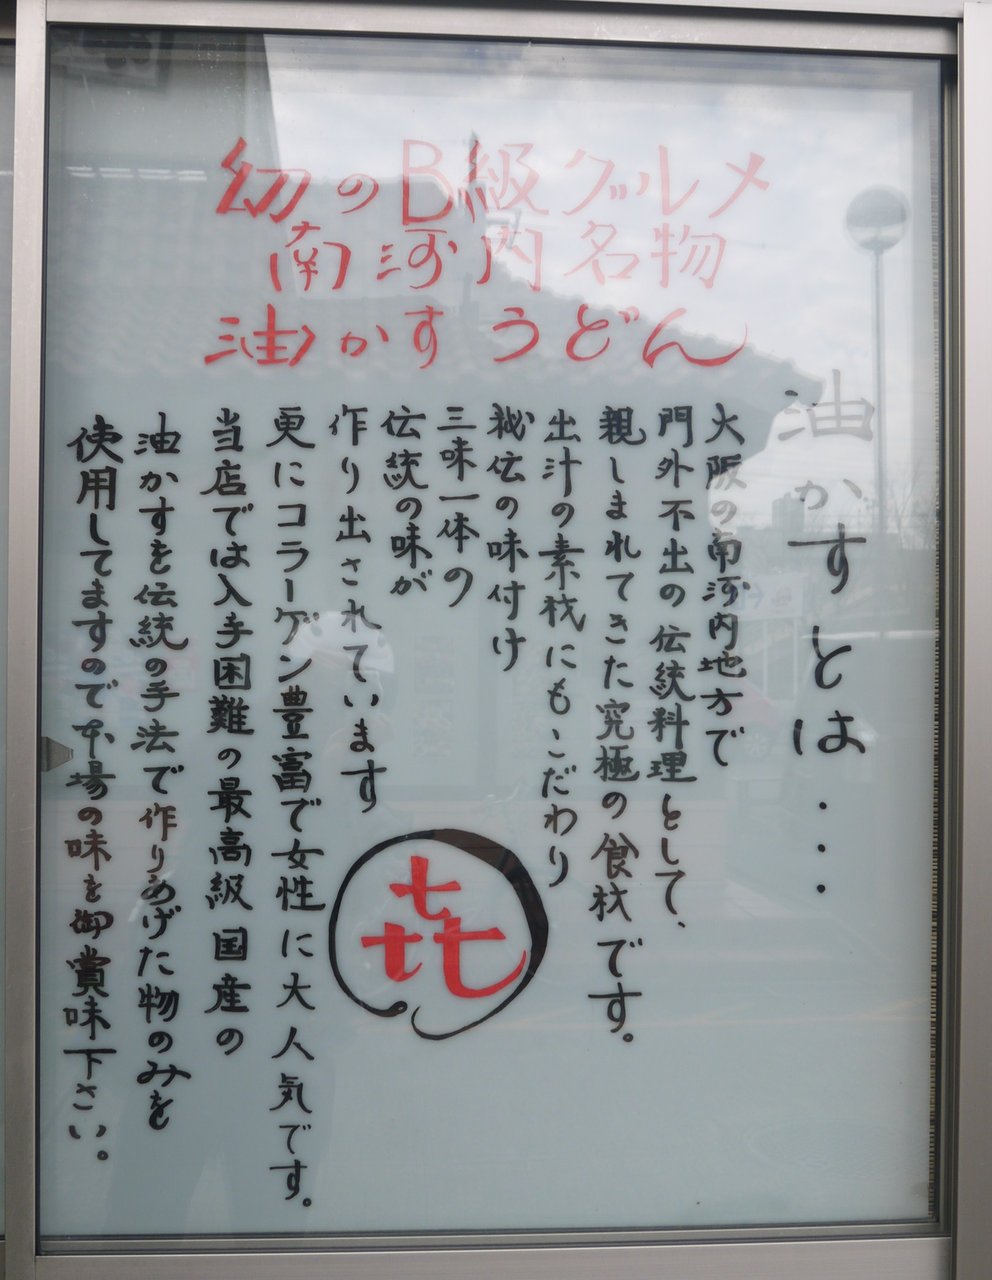 幻のB級グルメ
南河内名物
油かすうどん
油かすとは...
大阪の南河内地方で
門外不出の伝統料理として、
親しまれてきた究極の食材です。
出汁の素材にもこだわり
秘伝の味付け
三味一体の
伝統の味が
作り出されています
更にコラーゲン豊富で女性に大人気です。
当店では入手困難の最高級国産の
油かすを伝統の手法で作りあげた物のみを
使用してますので本場の味を御賞味下さい。
㐂